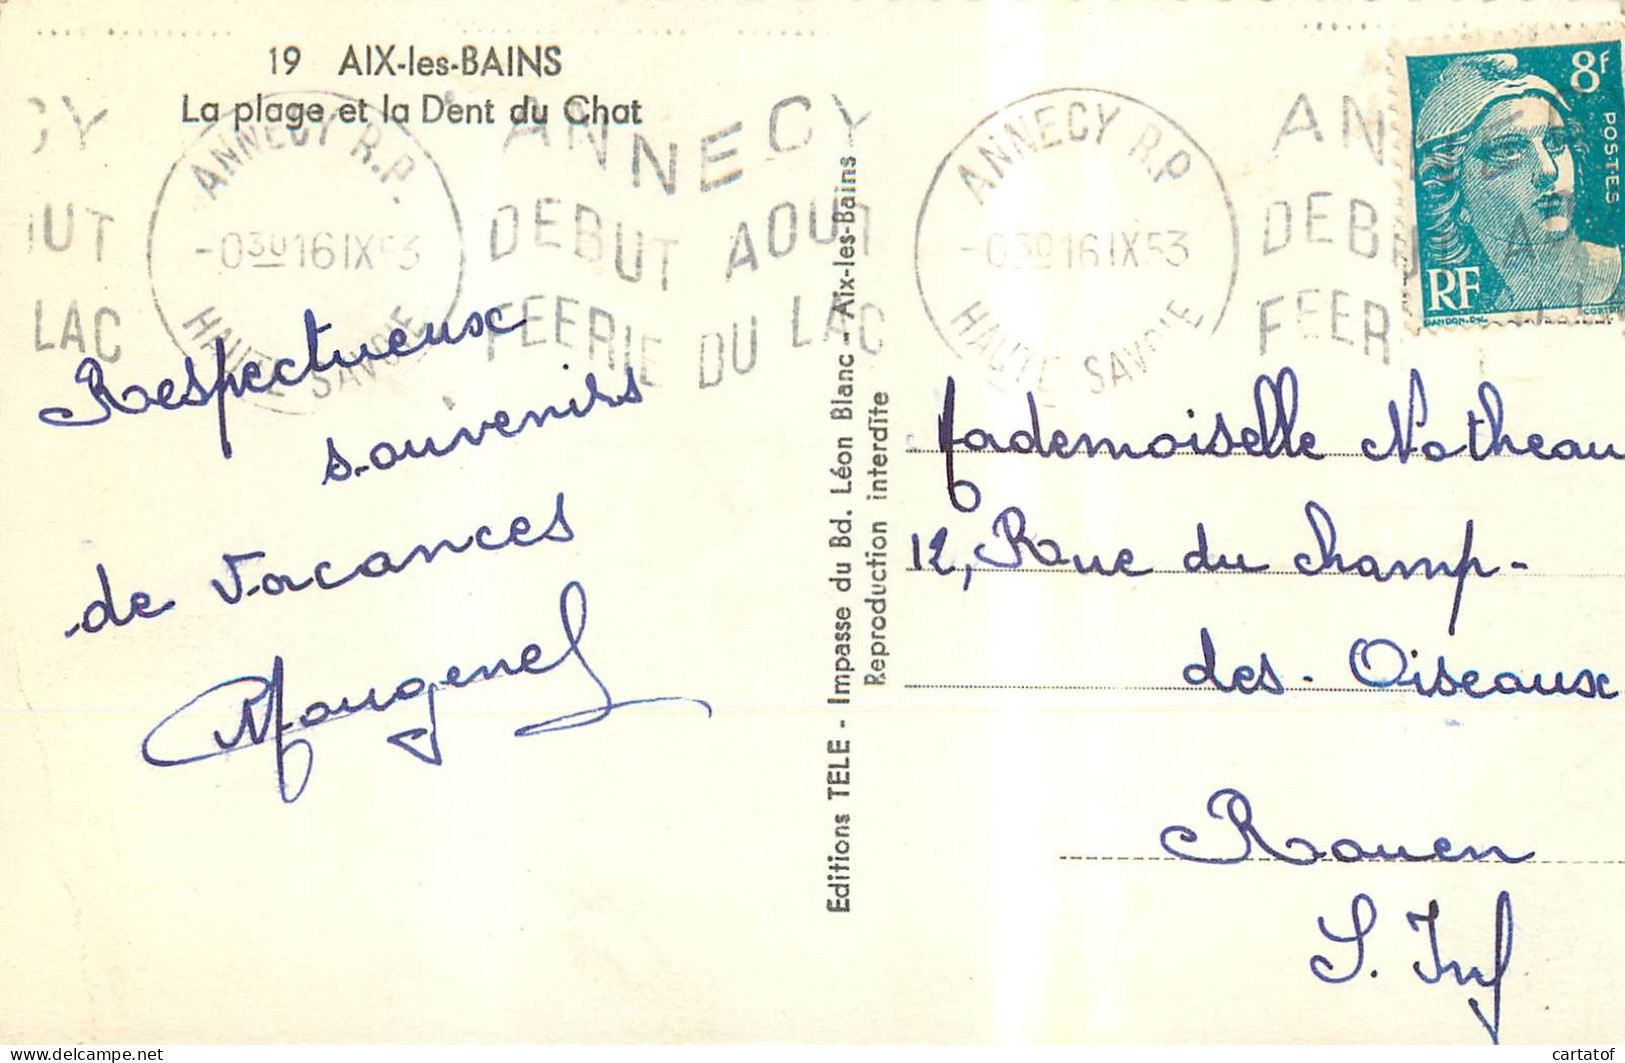 19 AIX-les-BAINS
La plage et la Dent du Chat
ANNECY R.P.
-0 30 16 IX 53
HAUTE SAVOIE
ANNECY
DEBUT AOUT
FEERIE DU LAC
CY
OUT
LAC
ANNECY R.P.
-0 30 16 IX 53
HAUTE SAVOIE
ANNE
DEB A
FEER
8F
POSTES
RF
GANDON.DEL
Respectueux
souvenirs
de vacances
Mougenel
Editions TELE - Impasse du Bd. Léon Blanc - Aix-les-Bains
Reproduction interdite
Mademoiselle Notheau
12, Rue du champ-
des-Oiseaux
Rouen
S. Inf
cartatof